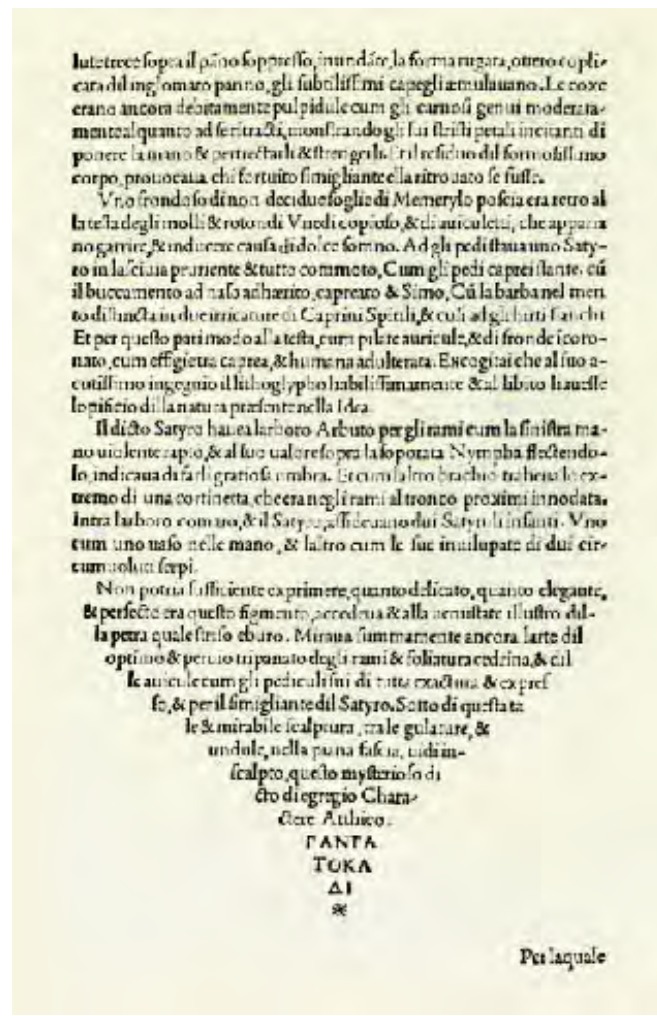 lutetrece sopra il pãno soppresso, inundãte, la forma rugata, ouero cõplicata dil inglomato panno, gli subtilissimi capegli æmulauano. Le coxe
erano ancora debitamente pulpidule cum gli carnosi genui moderatamente alquanto ad se ritracti, monstrando gli sui stricti petali incitanti di
ponere la mano & pertractarli & strengerli. Et il residuo dil formosissimo
corpo, prouocaua chi fortuito simigliante ella ritrouato se fusse.
Vno frondoso di non decidue foglie di Memerylo poscia era retro al
la testa degli molli & rotondi Vnedi copioso, & di auiculetti, che appariano garrire, & inducere causa di dolce somno. Ad gli pedi staua uno Satyro in lasciuia pruriente & tutto commoto, Cum gli pedi caprei stante, cũ
il buccamento ad naso adhærito, capreato & Simo, Cũ la barba nel mento distincta in due irricature di Caprini Spirili, & cusi ad gli hirti fianchi
Et per questo pari modo alla testa, cum pilate auricule, & di fronde icoronato, cum effigie tra caprea, & humana adulterata. Excogitai che al suo acutissimo ingegnio il lithoglypho habilissimamente & al libito hauesse
lopificio dilla natura præsente nella Idea.
Il dicto Satyro hauea larboro Arbuto per gli rami cum la sinistra mano uiolente rapto, & al suo ualore sopra la soporata Nympha flectendolo, indicaua di farli gratiosa umbra. Et cum laltro brachio traheua lo extremo di una cortinetta, che era negli rami al tronco proximi innodata.
Intra larboro comaro, & il Satyro, assideuano dui Satyruli infanti. Vno
cum uno uaso nelle mano, & laltro cum le sue inuilupate di dui circumuoluti serpi.
Non potria sufficiente exprimere, quanto delicato, quanto elegante,
& perfecto era questo figmento, accedeua & alla uenustate illustro dilla petra quale stristo eburo. Miraua summamente ancora larte dil
optimo & peruio tripanato degli rami & foliatura cedrina, & dil
le auicule cum gli pediculi sui di tutta exactura & expresso, & per il simigliante dil Satyro. Sotto di questa ta
le & mirabile scalptura, tra le gulature, &
undule, nella piana fascia, uidi inscalpto, questo mysterioso di
cto di egregio Charactere Atthico.
ΠΑΝΤΑ
ΤΟΚΑ
ΔΙ
Per laquale